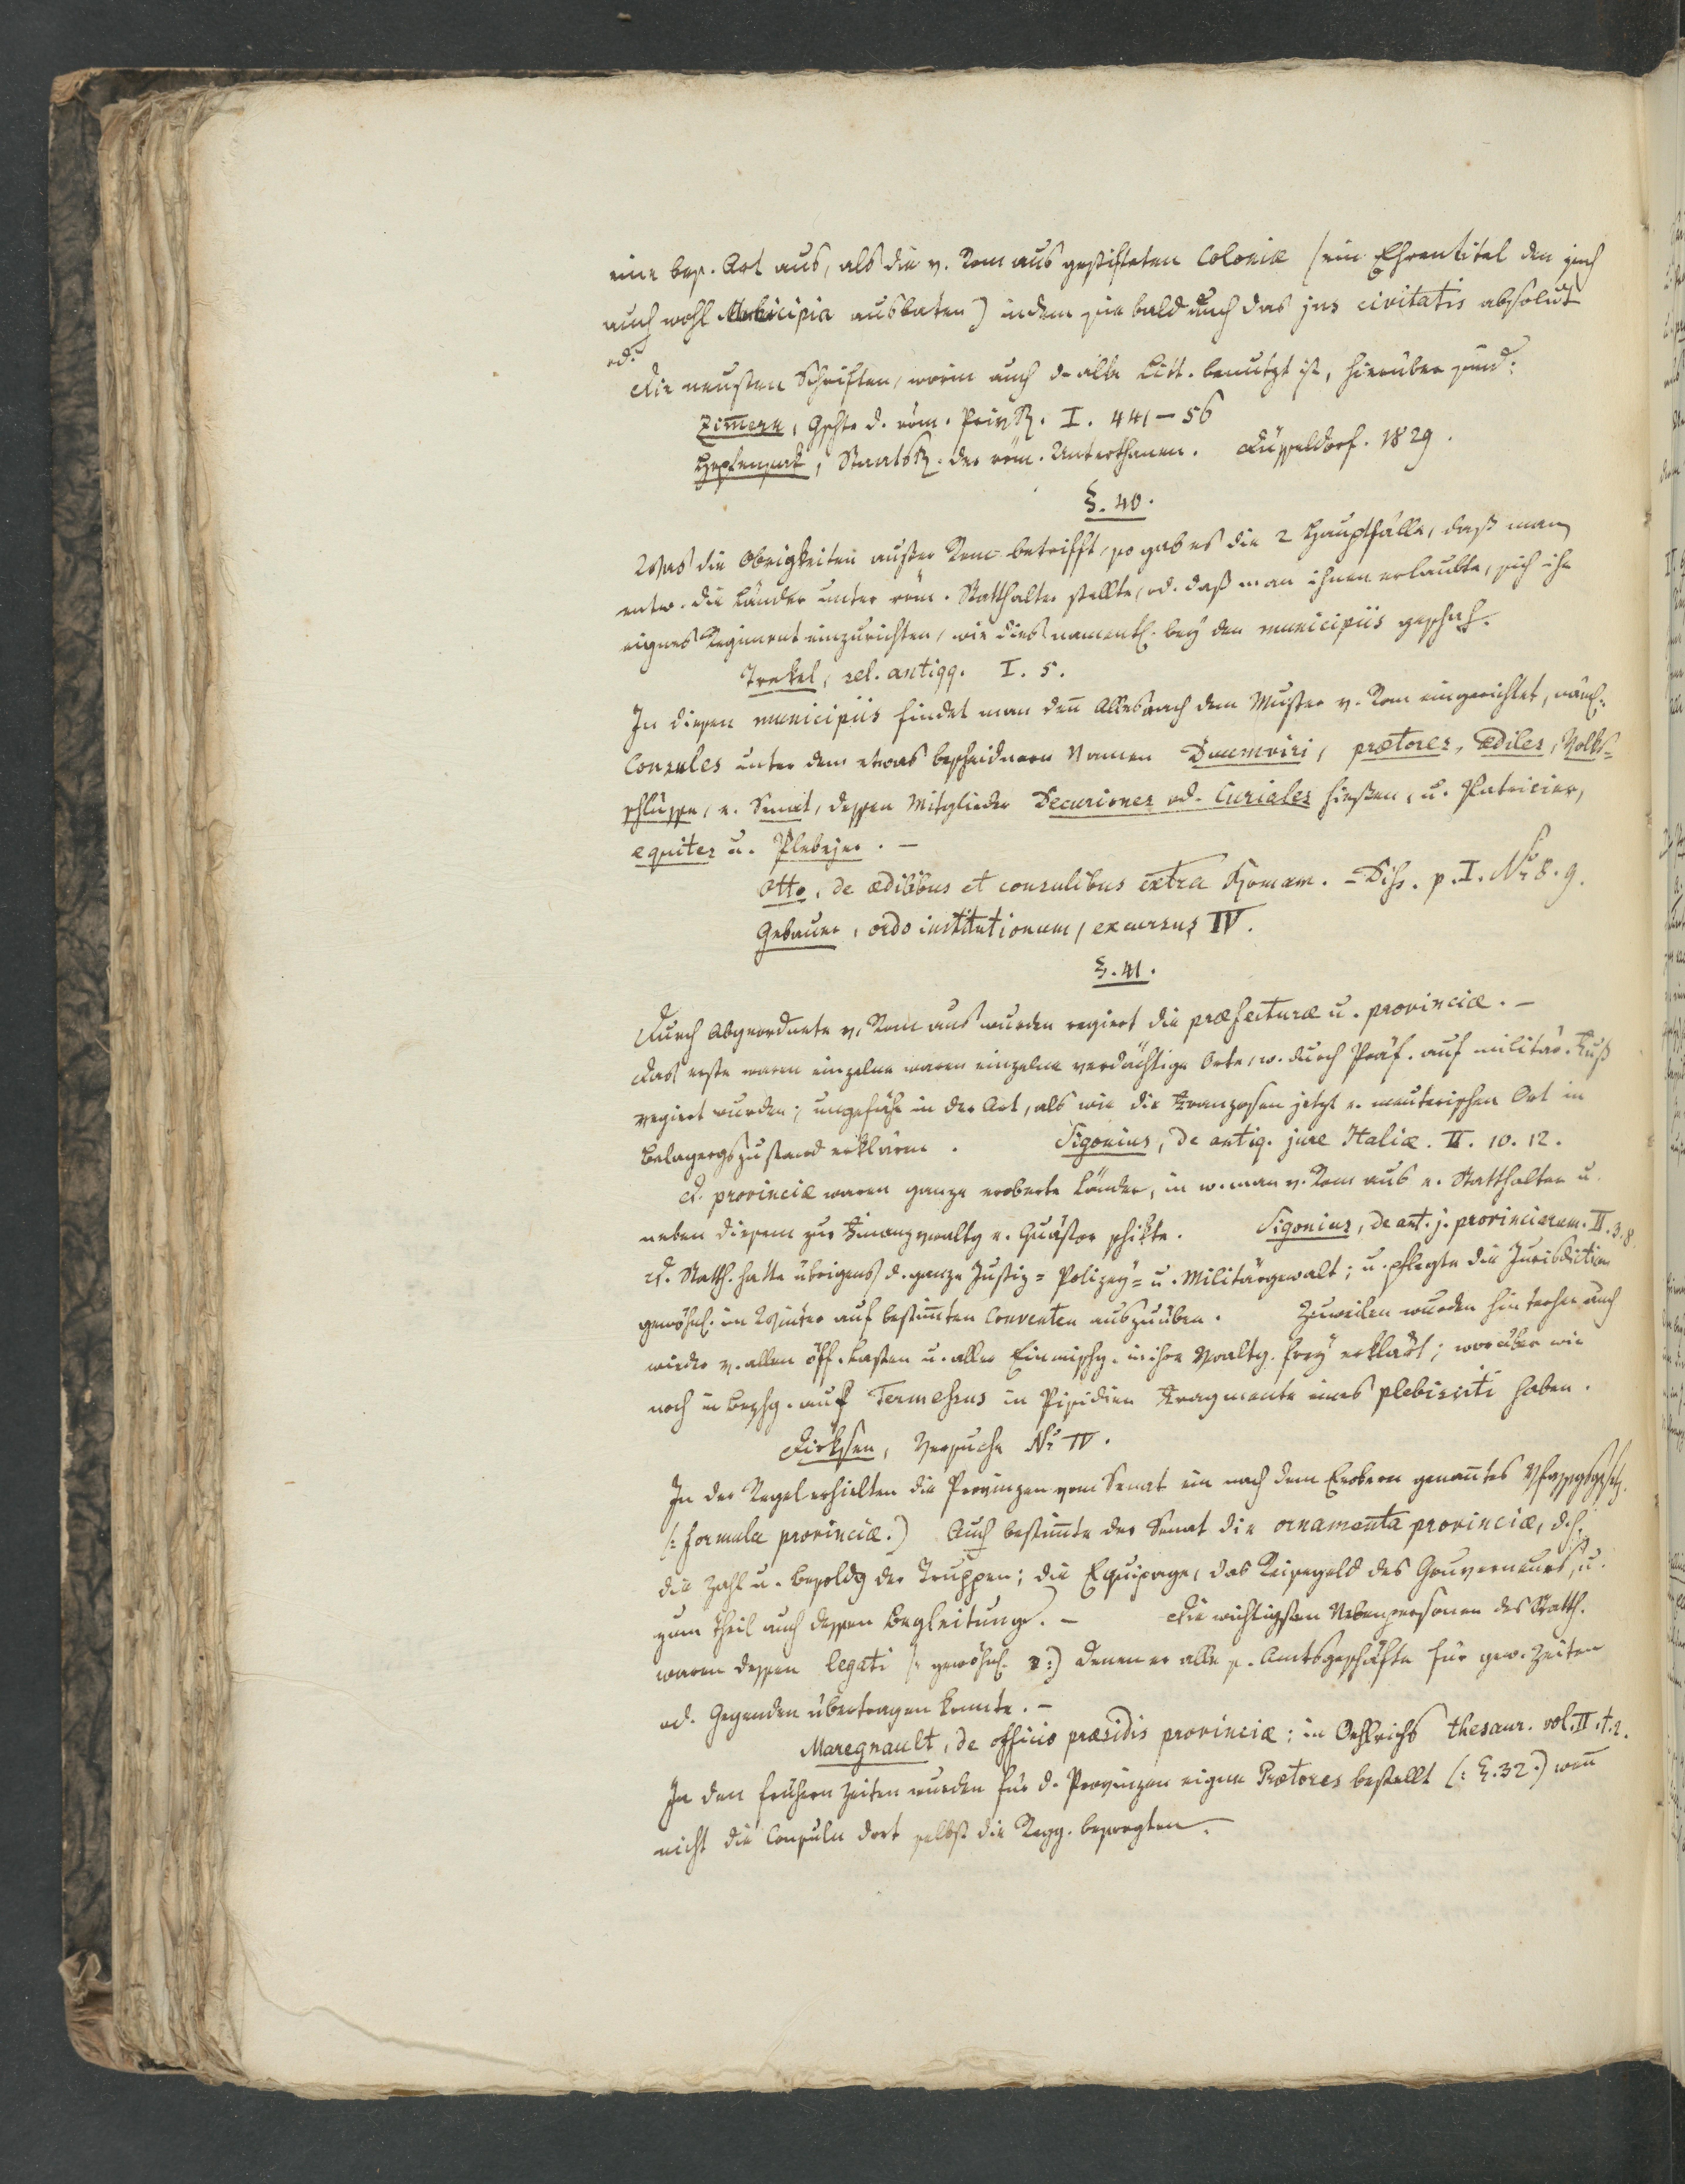 eine bes. Art aus, als die v. Rom aus gestifteten Coloniæ (ein Ehrentitel den sich
auch wohl Municipia ausbaten) indem sie bald auch das jus civitatis absolut
od.
Die neusten Schriften, worin auch d. alte Litt. benutzt ist, hierüber sind:
Zim̄ern, Gschte d. röm. PrivR. I. 441–56
StaatsR. der röm. Unterthanen. Düsseldorf. 1829.
§. 40.
Was die Obrigkeiten außer Rom betrifft, so gab es die 2 Hauptfälle, daß man
entw. die Länder unter röm. Statthalter stellte, od. daß man ihnen erlaubte, sich ihr
eignes Regiment einzurichten, wie dies namentl. bey den municipiis geschah.
Trekel, sel. antiqq. I. 5.
In diesen municipiis findet man den̄ Alles nach dem Muster v. Rom eingerichtet, näml.
Consules unter dem etwas bescheidnern Namen Duumviri, prætores, ædiles, Volks-
schlüsse, e. Senat, dessen Mitglieder Decuriones od. Curiales hießen, u. Patricier,
equites u. Plebejer. –
Otto, de ædilibus et consulibus extra Romam. – Diss. p. I. Nr 8. 9.
Gebauer, ordo institutionum, excursus IV.
§. 41.
Durch Abgeordnete v. Rom aus wurden regiert die præfecturæ u. provinciæ. –
Das erste waren einzelne waren einzelne verdächtige Orte, w. durch Präf. auf militär. Fuß
regiert wurden; ungefähr in der Art, als wie die Franzosen jetzt e. meuterischen Ort in
Belagergszustand erklären. Sigonius, de antiq. jure Italiæ. II. 10. 12.
d. provinciæ waren ganze eroberte Länder, in w. man v. Rom aus e. Statthalter u.
neben diesem zur Finanzvwaltg e. Quästor schikte. Sigonius, de ant. j. provinciarum. II. 3. 8.
d. Statth. hatte übrigens d. ganze Justiz- Polizey- u. Militärgewalt; u. pflegte die Jurisdiction
gewöhnl. im Winter auf bestim̄ten Conventen auszuüben. Zuweilen wurden hinterher auch
wieder v. allen öff. Lasten u. aller Einmischg. in ihre Vwaltg. frey erklärt; worüber wir
noch in Bezhg. auf Termessus in Pisidien Fragmente eines plebisciti haben.
Dirksen, Versuche Nr IV.
In der Regel erhielten die Provinzen vom Senat ein nach dem Erobern genan̄tes Vfassgsgsetz.
(: formula provinciæ.) Auch bestim̄te der Senat die ornamenta provinciæ, d. h.
die Zahl u. Besoldg der Truppen; die Equipage, das Reisegeld des Gouverneurs, u.
zum Theil auch dessen Begleitung. – Die wichtigsten Nebenpersonen des Statth.
waren dessen legati (: gewöhnl. 3:) denen er alle s. Amtsgeschäfte für gew. Zeiten
od. Gegenden übertragen konnte. –
Maregnault, de officio præsidis provinciæ: in Oehlrichs thesaur. vol. II. t. 2.
In den frühern Zeiten wurden für d. Provinzen eigene Prætores bestellt (: §. 32.) wen̄
nicht die Consuln dort selbst die Regg. besorgten.